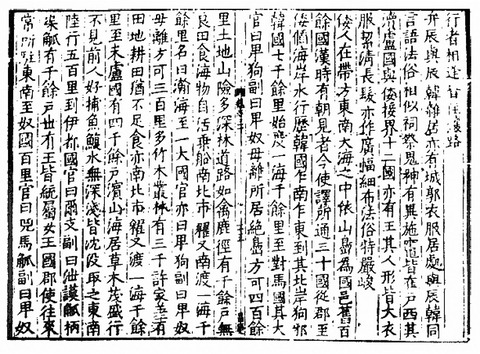 行者相逢皆住讓路
弁辰與辰韓雜居亦有城郭衣服居處與辰韓同
言語法俗相似祠祭鬼神有異施竈皆在戶西其
瀆盧國與倭接界十二國亦有王其人形皆大衣
服絜清長髮亦作廣幅細布法俗特嚴峻
倭人在帶方東南大海之中依山島為國邑舊百
餘國漢時有朝見者今使譯所通三十國從郡至
倭循海岸水行歷韓國乍南乍東到其北岸狗邪
韓國七千餘里始度一海千餘里至對馬國其大
官曰卑狗副曰卑奴母離所居絕島方可四百餘
里土地山險多深林道路如禽鹿徑有千餘戶無
良田食海物自活乗船南北市糴又南渡一海千
餘里名曰瀚海至一大國官亦曰卑狗副曰卑奴
母離方可三百里多竹木叢林有三千許家差有
田地耕田猶不足食亦南北市糴又渡一海千餘
里至末盧國有四千餘戶濱山海居草木茂盛行
不見前人好捕魚鰒水無深淺皆沈沒取之東南
陸行五百里到伊都國官曰爾支副曰泄謨觚柄
渠觚有千餘戶世有王皆統屬女王國郡使往來
常所駐東南至奴國百里官曰兕馬觚副曰卑奴